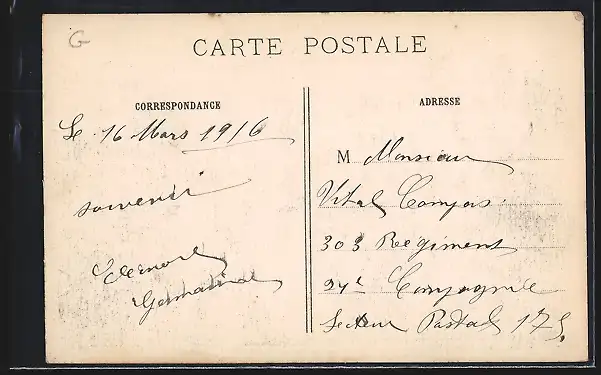 G
CARTE POSTALE
CORRESPONDANCE
Le 16 Mars 1916
souvenir
Germaine
ADRESSE
M Monsieur
Vital Compas
303 Regiment
24e Compagnie
Secteur Postal 175